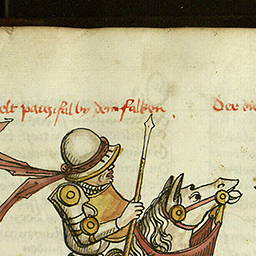 elt parcifal by dem falken Die